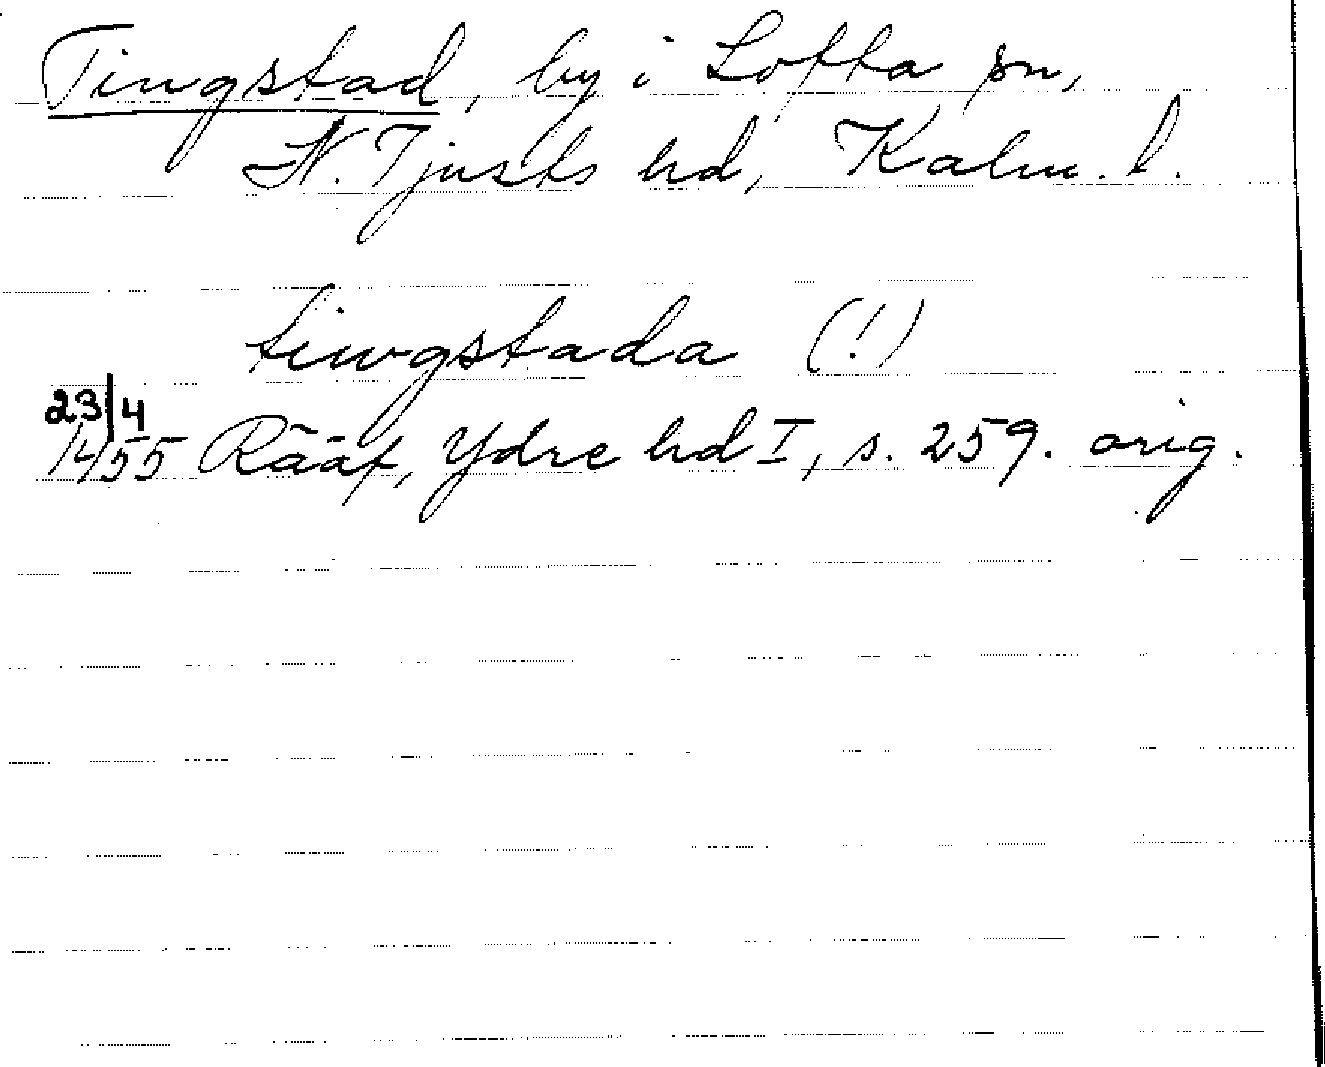 Tingstad, by i Lofta sn,
N. Tjusts hd, Kalm. l.
tingstada (!)
23/4
1455 Rääf, Ydre hd I, s. 259. orig.